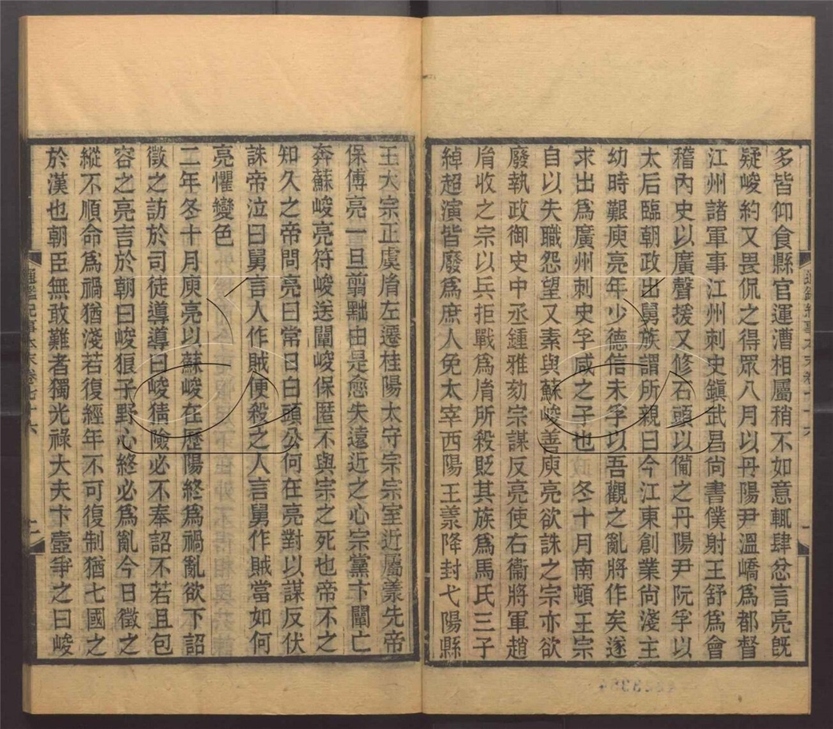 多皆仰食縣官運漕相屬稍不如意輒肆忿言亮旣
疑峻約又畏侃之得眾八月以丹陽尹溫嶠爲都督
江州諸軍事江州刺史鎭武昌尙書僕射王舒爲會
稽內史以廣聲援又修石頭以備之丹陽尹阮孚以
太后臨朝政出舅族謂所親曰今江東創業尙淺主
幼時艱庾亮年少德信未孚以吾觀之亂將作矣遂
求出爲廣州刺史孚咸之子也 冬十月南頓王宗
自以失職怨望又素與蘇峻善庾亮欲誅之宗亦欲
廢執政御史中丞鍾雅劾宗謀反亮使右衞將軍趙
胤收之宗以兵拒戰爲胤所殺貶其族爲馬氏三子
綽超演皆廢爲庶人免太宰西陽王羕降封弋陽縣
王大宗正虞胤左遷桂陽太守宗宗室近屬羕先帝
保傅亮一旦翦黜由是愈失遠近之心宗黨卞闡亡
奔蘇峻亮符峻送闡峻保匿不與宗之死也帝不之
知久之帝問亮曰常日白頭公何在亮對以謀反伏
誅帝泣曰舅言人作賊便殺之人言舅作賊當如何
亮懼變色
二年冬十月庾亮以蘇峻在歷陽終爲禍亂欲下詔
徵之訪於司徒導導曰峻猜險必不奉詔不若且包
容之亮言於朝曰峻狼子野心終必爲亂今日徵之
縱不順命爲禍猶淺若復經年不可復制猶七國之
於漢也朝臣無敢難者獨光祿大夫卞壼爭之曰峻
通鑑紀事本末卷七十六